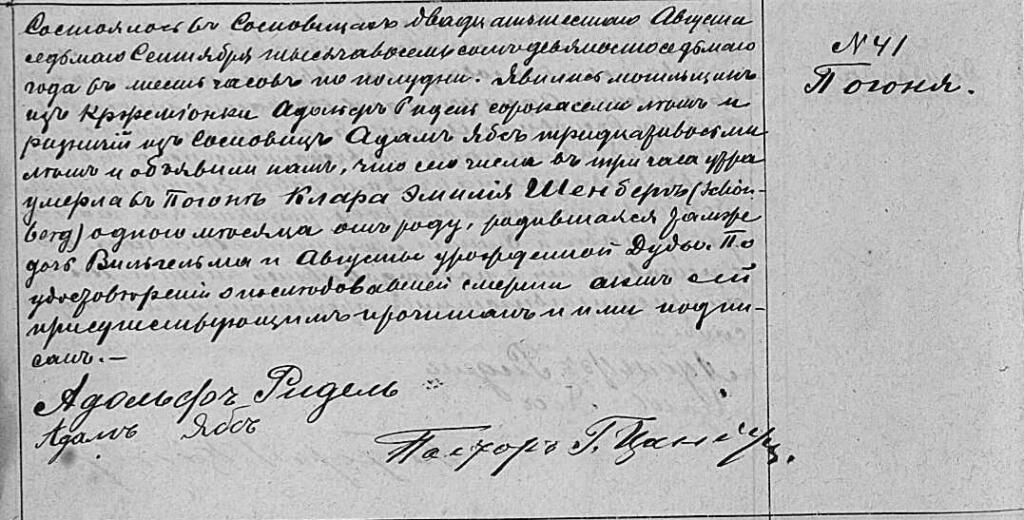 Состоялось въ Сосновицахъ двадцатьшестаго Августа
седьмаго Сентября тысяча восемьсотъ девяносто седьмаго
года въ шесть часовъ по полудни. Явились могильщикъ
изъ Кржеміонки Адольфъ Ридель сорока семи лѣтъ и
рѣзчій изъ Сосновицъ Адамъ Ябсъ тридцати восьми
лѣтъ и объявили намъ, что сего числа въ три часа утра
умерла въ Погонѣ Клара Эмилія Шенбергъ (Schön-
berg) одного мѣсяца отъ роду, родившаяся тамже
дочь Вильгельма и Августы урожденной Дуды. По
удостовѣреніи о послѣдовавшей смерти актъ сей
присутствующимъ прочитанъ и ими подпи-
санъ.—
Адольфъ Ридель
Адамъ Ябсъ
Пасторъ Г.
N 41
Погоня.